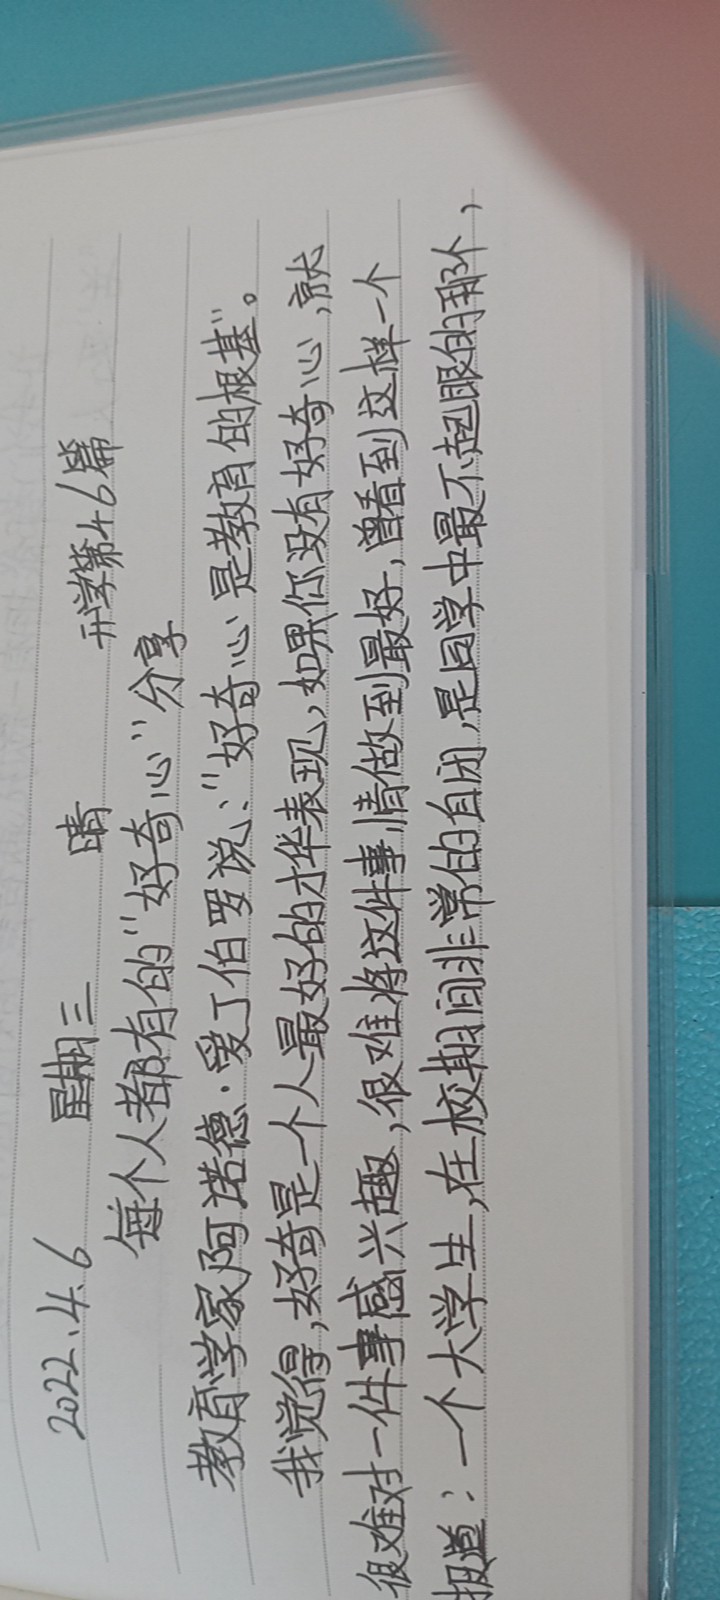 2022.4.6 星期三 晴 开学第46篇
每个人都有的"好奇心"分享
教育学家阿诺德·爱丁伯罗说:"好奇心是教育的根基"。
我觉得,好奇是一个人最好的才华表现,如果你没有好奇心,就
很难对一件事感兴趣,很难将这件事情做到最好,曾看到这样一个
报道:一个大学生,在校期间非常的自闭,是同学中最不起眼的那个,